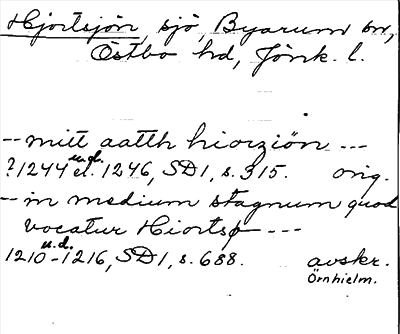 Hjortsjön, sjö, Byarum sn,
Östbo hd, Jönk. l.
-- mitt aatth hiorziön ---
?1244 u.d. el. 1246, SD 1, s. 315. orig.
-- in medium stagnum quod
vocatur Hiortsø ---
1210 u.d. - 1216, SD 1, s. 688. avskr.
Örnhielm.